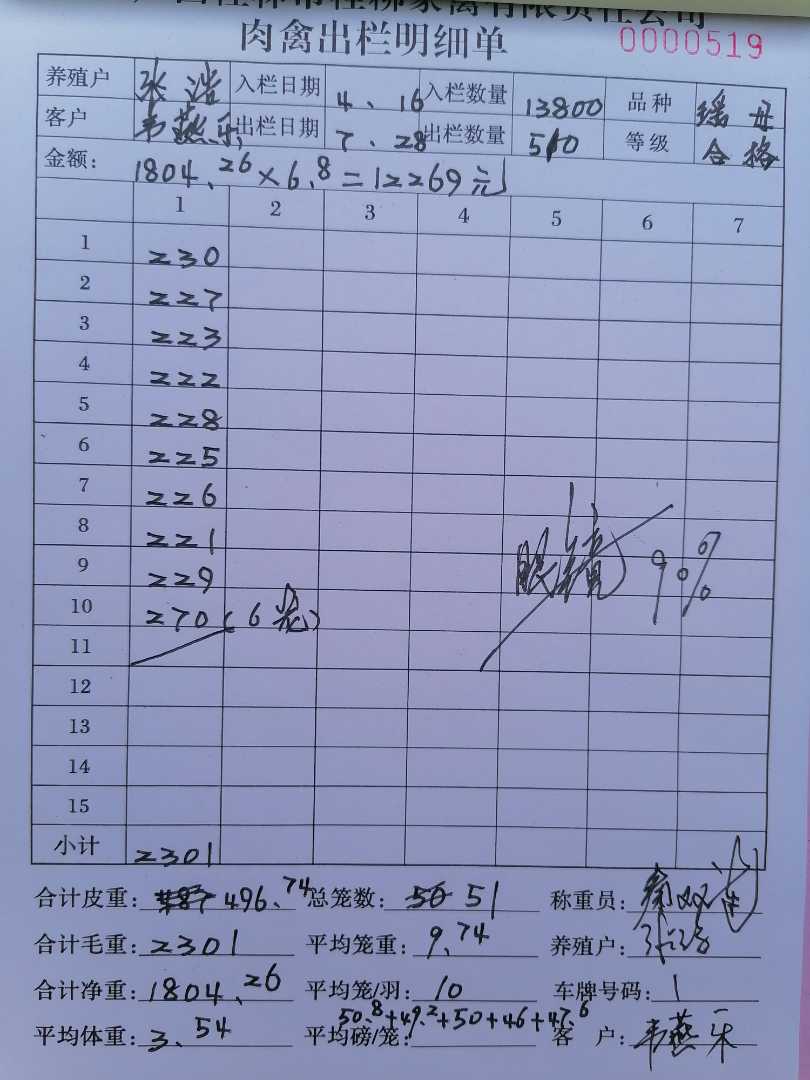 广西桂林市桂柳家禽有限责任公司
肉禽出栏明细单 0000519
养殖户 张浩 入栏日期 4、16 入栏数量 13800 品种 瑶母
客户 韦燕乐 出栏日期 7、28 出栏数量 510 等级 合格
金额: 1804.26×6.8=12269元
1 2 3 4 5 6 7
1 230
2 227
3 223
4 222
5 228
6 225
7 226
8 221
9 229
10 270(6笼)
11
12
13
14
15
眼镜 9%
小计 2301
合计皮重: 496.74 总笼数: 50 51 称重员:
合计毛重: 2301 平均笼重: 9.74 养殖户: 张浩
合计净重: 1804.26 平均笼/羽: 10 车牌号码: 1
平均体重: 3.54 平均磅/笼: 50.8+49.2+50+46+47.6 客户: 韦燕乐